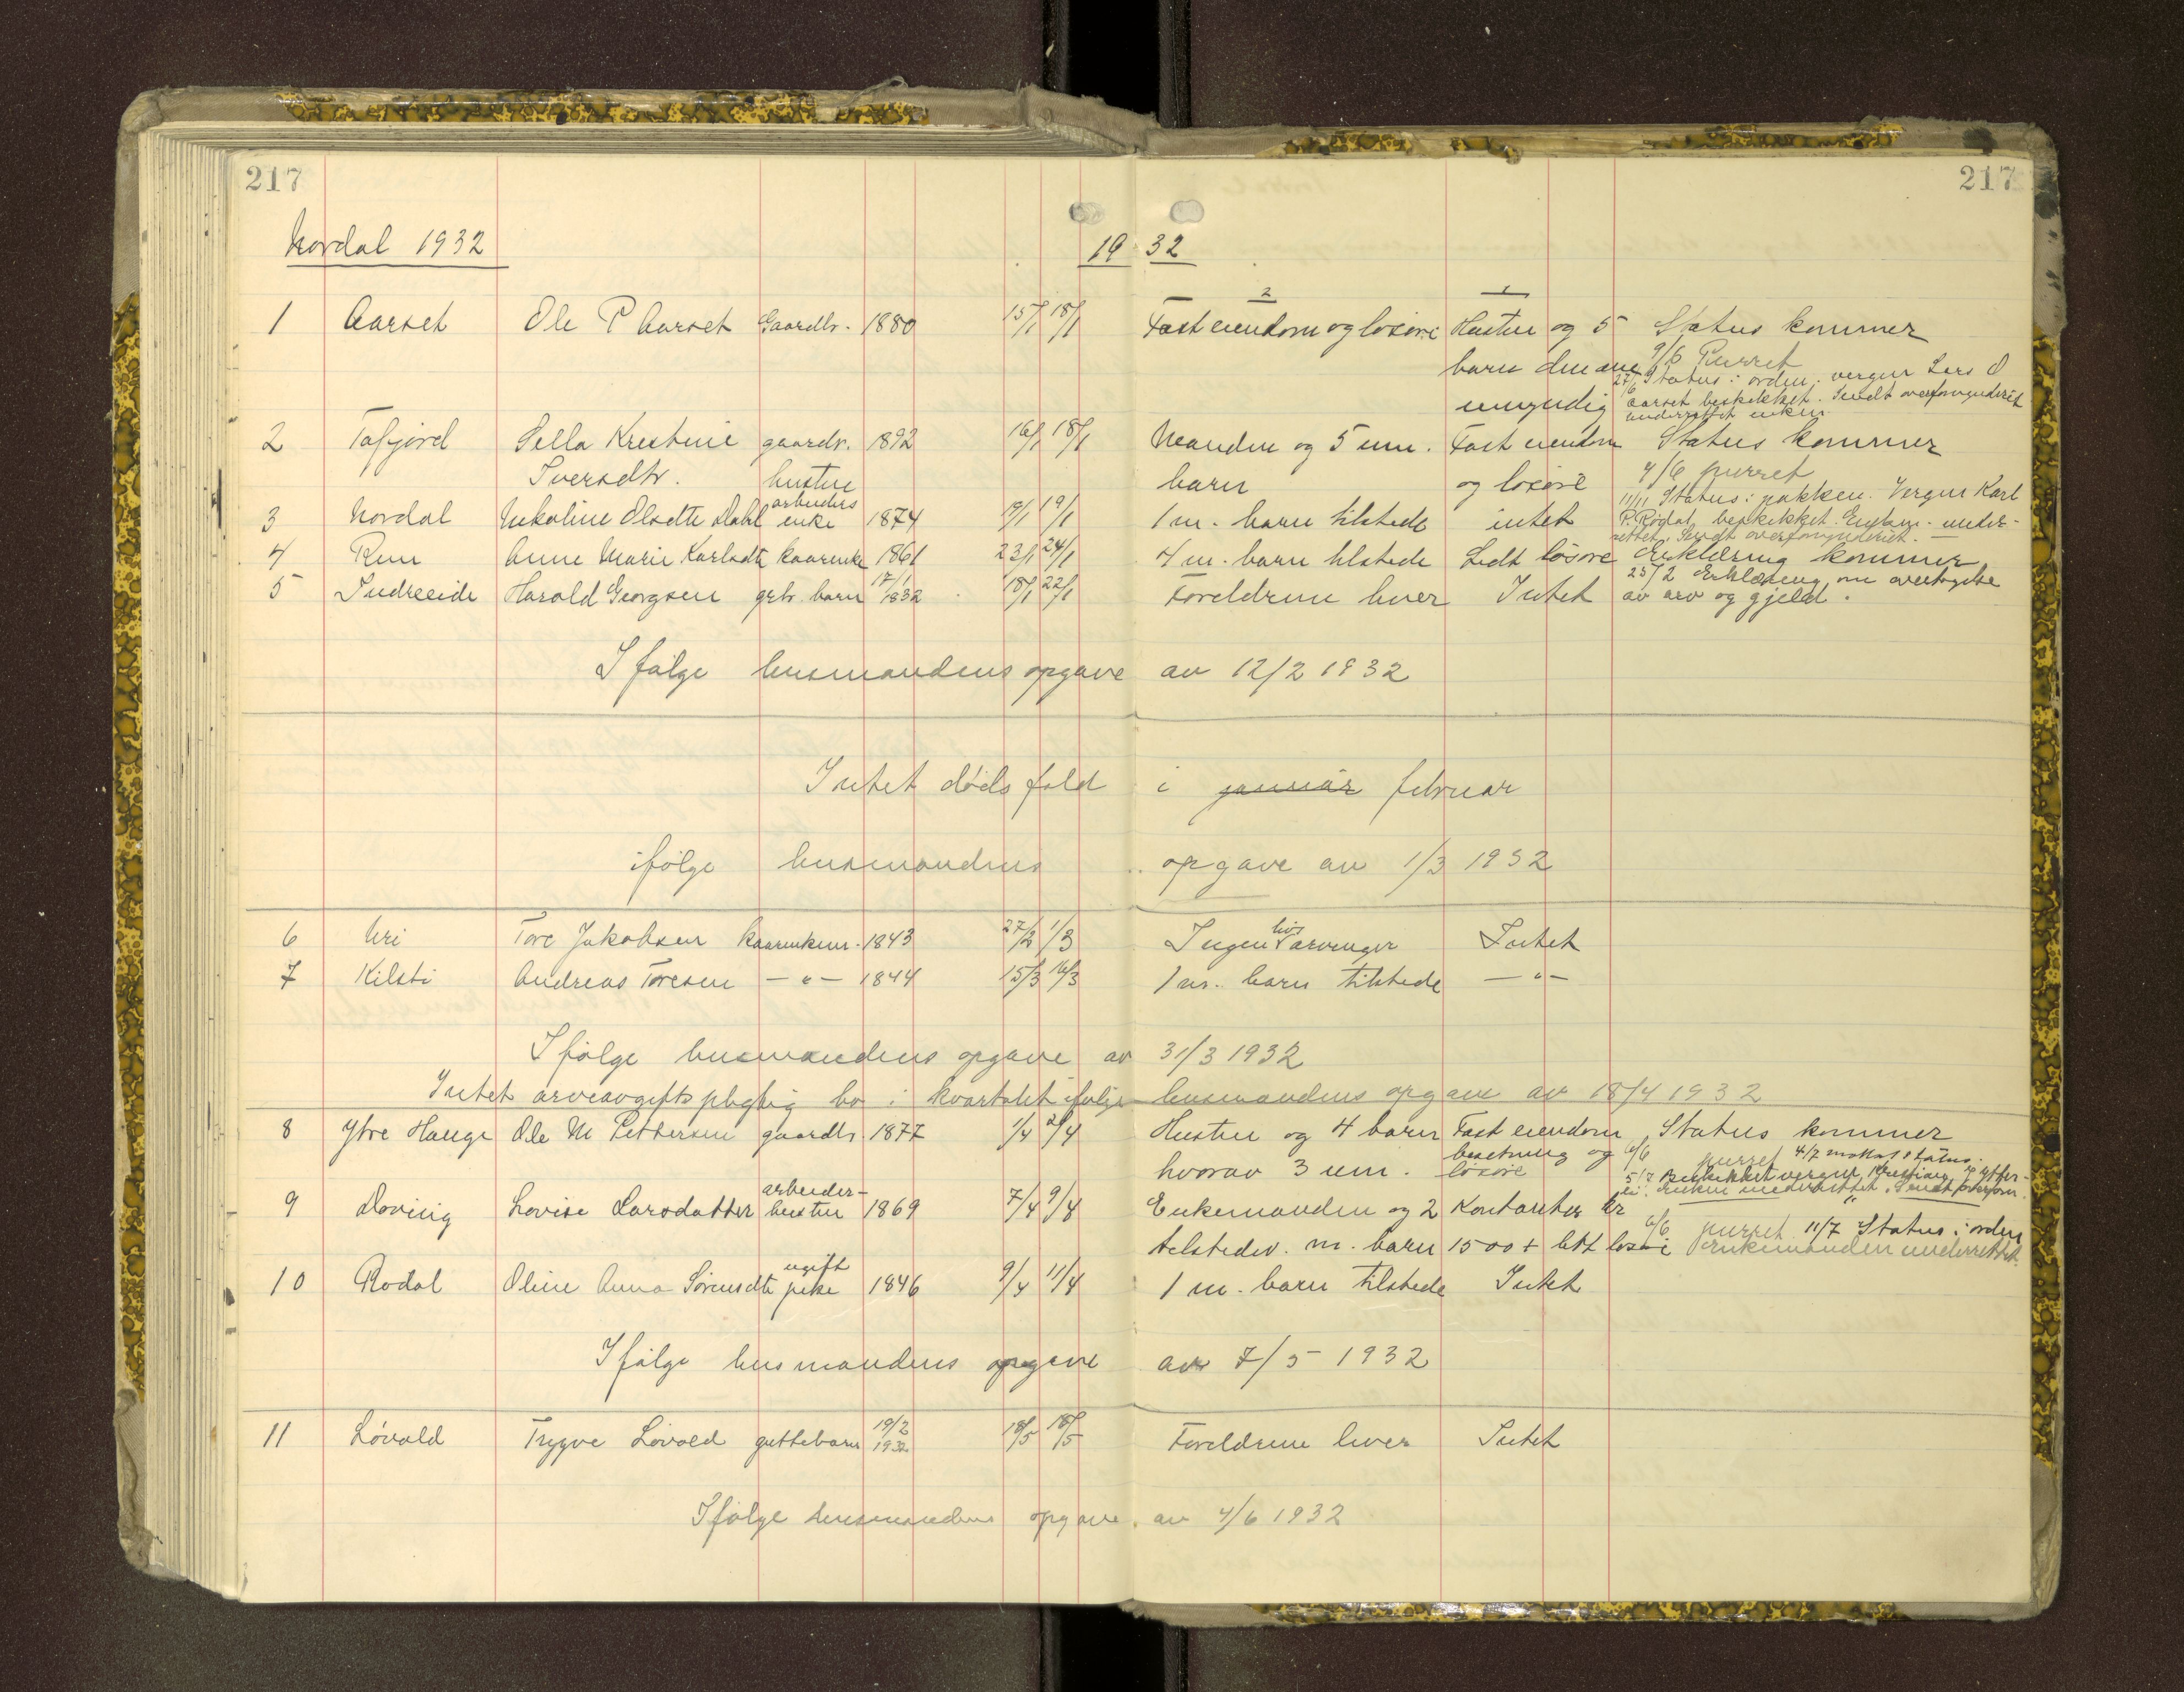 217 217
Nordal 1932 19 32
1 Aarset Ole P Aarset Gaardbr. 1880 15/1 18/1 Fast eiendom og løsøre Hustru og 5 Status kommer
2 1
barn den ene 9/6 Purret
27/6 Status i orden. verger Lars O
umyndig Aarset beskikket. Sendt overformynderiet
underrettet enken
2 Tafjord Pella Kristine gaardbr. 1892 16/1 18/1 Manden og 5 um. Fast eiendom Status kommer
Iversdtr. hustru barn og løsøre 4/6 purret
11/11 Status i pakken. Verger Karl
3 Nordal Nikoline Olsdtr Dahl arbeiders enke 1874 19/1 19/1 1 m. barn tilstede intet P. Rødal beskikket. Enkem. underrettet. Sendt overformynderiet.
4 Rem Anne Marie Karlsdtr kaarenke 1861 23/1 24/1 4 m. barn tilstede Lidt løsøre Erklæring kommer
25/2 Erklæring om overtagelse
5 Indreeide Harald Georgsen gtb. barn 17/1 1932 18/1 22/1 Foreldrene lever Intet av arv og gjeld.
Ifølge lensmandens opgave av 12/2 1932
Intet dødsfald i januar februar
ifølge lensmandens opgave av 1/3 1932
6 Uri Tore Jakobsen kaarenkem. 1843 27/2 1/3 Ingen livsarvinger Intet
7 Kilsti Andreas Toresen — " — 1844 15/3 16/3 1 m. barn tilstede — " —
Ifølge lensmandens opgave av 31/3 1932
Intet arveavgiftspligtig bo i kvartalet ifølge lensmandens opgave av 18/4 1932
8 Ytre Hauge Ole M Pettersen gaardbr. 1877 1/4 2/4 Hustru og 4 barn Fast eiendom, Status kommer
hvorav 3 um. besetning og løsøre 6/6 purret 4/7 mottat status.
5/7 Beskikket verger
Enken underrettet. Sendt overform.
9 Døving Lovise Larsdatter arbeider-hustru 1869 7/4 9/4 Enkemanden og 2 Kontanter kr
tilstedev. m. barn 1500 + litt løsøre 6/6 purret 11/7 Status i orden
Enkemanden underrettet.
10 Rødal Oline Anna Sørensdtr ugift pike 1846 9/4 11/4 1 m. barn tilstede Intet
Ifølge lensmandens opgave av 7/5 1932
11 Løvold Trygve Løvold guttebarn 19/2 1932 18/5 18/5 Foreldrene lever Intet
Ifølge lensmandens opgave av 4/6 1932